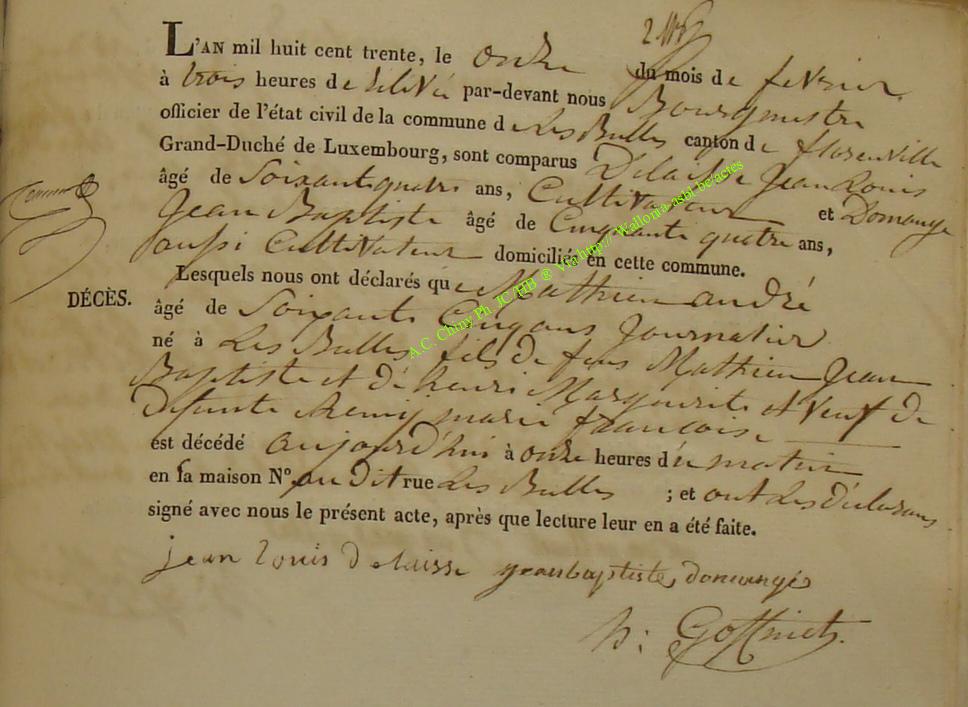 L'AN mil huit cent trente, le onze du mois de fevrier
à trois heures de relevée par-devant nous Bourgmestre
officier de l'état civil de la commune de Les Bulles canton de florenville
Grand-Duché de Luxembourg, sont comparus Délaisse Jean Louis
âgé de Soixante quatre ans, Cultivateur et Domange
Jean Baptiste âgé de Cinquante quatre ans,
aussi Cultivateur domiciliés en cette commune.
Lesquels nous ont déclarés que Mathieu andré
DÉCÈS.
âgé de Soixante Cinq ans Journalier
né à Les Bulles fils de feus Mathieu Jean
Baptiste et de henri Margueritte et Veuf de
Défunte Remy marie francoise
est décédé aujourd'hui à onze heures du matin
en sa maison N° au dit rue Les Bulles ; et ont Les Déclarans
signé avec nous le présent acte, après que lecture leur en a été faite.
jean louis delaisse jean baptiste domange
h: Goffinet
A.C. Chiny Ph JC/HB ® Via http:// Wallonia-asbl-be/actes